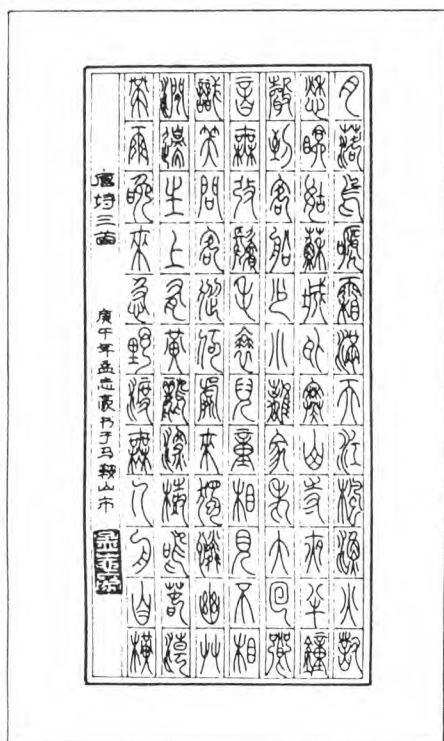 月落烏啼霜滿天江楓漁火對
愁眠姑蘇城外寒山寺夜半鐘
聲到客船少小離家老大回鄉
音無改鬢毛衰兒童相見不相
識笑問客從何處來獨憐幽艸
澗邊生上有黃鸝深樹鳴春潮
帶雨晚來急野渡無人舟自橫
唐诗三首 庚午年孟志豪书于马鞍山市
孟志豪